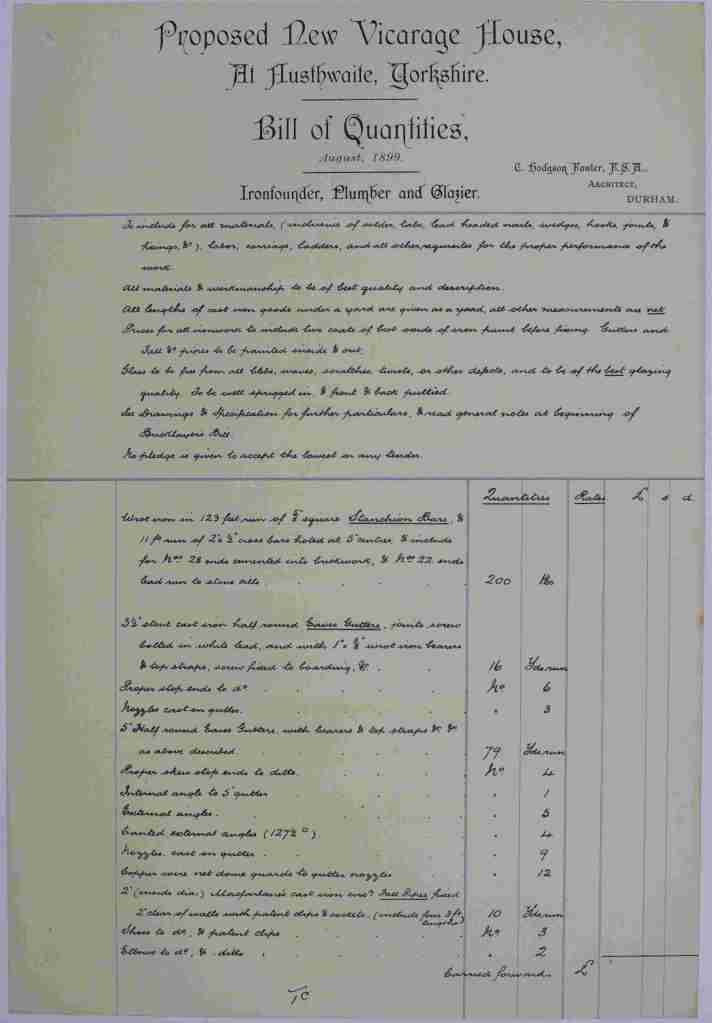 Proposed New Vicarage House,
At Austhwaite, Yorkshire.
Bill of Quantities,
August, 1899.
C. Hodgson Fowler, F.S.A.,
Architect,
DURHAM.
Ironfounder, Plumber and Glazier.
To include for all materials, (inclusive of solder, tacks, lead headed nails, wedges, hooks, joints, &
fixings, &c), labor, carriage, ladders, and all other requisites for the proper performance of the
work.
All materials & workmanship to be of best quality and description.
All lengths of cast iron goods under a yard are given as a yard, all other measurements are net.
Prices for all ironwork to include two coats of best oxide of iron paint before fixing. Gutters and
Fall Pipes to be painted inside & out.
Glass to be free from all blebs, waves, scratches, or other defects, and to be of the best glazing
quality. To be well sprigged in, & front & back puttied.
See Drawings & Specification for further particulars, & read general notes at beginning of
Bricklayer's Bill.
No pledge is given to accept the lowest or any tender.
Quantities Rates £ s d
Wrot iron in 123 feet run of square Stanchion Bars, &
11 ft run of cross bars holed at 5" centres, & include
for Nos 28 ends cemented into brickwork, & Nos 22 ends
lead run to stone sills 200 lbs
3½" stout cast iron half round Eaves Gutters, joints screw
bolted in white lead, and with wrot iron bearers
& top straps, screw fixed to boarding, &c. 16 Yds run
Proper stop ends to do No 6
Nozzles cast on gutter. " 3
5" Half round Eaves Gutters, with bearers & top straps &c &c
as above described 79 Yds run
Proper skew stop ends to ditto. No 4
Internal angle to 5" gutter " 1
External angles. " 5
Canted external angles (127½°) " 4
Nozzles cast on gutter. " 9
Copper wire net dome guards to gutter nozzles " 12
2" (inside dia.) Macfarlane's cast iron Fall Pipes fixed
2" clear of walls with patent clips & sockets, (include four 3 ft lengths) 10 Yds run
Shoes to do, & patent clips No 3
Elbows to do, & ditto " 2
Carried forward £